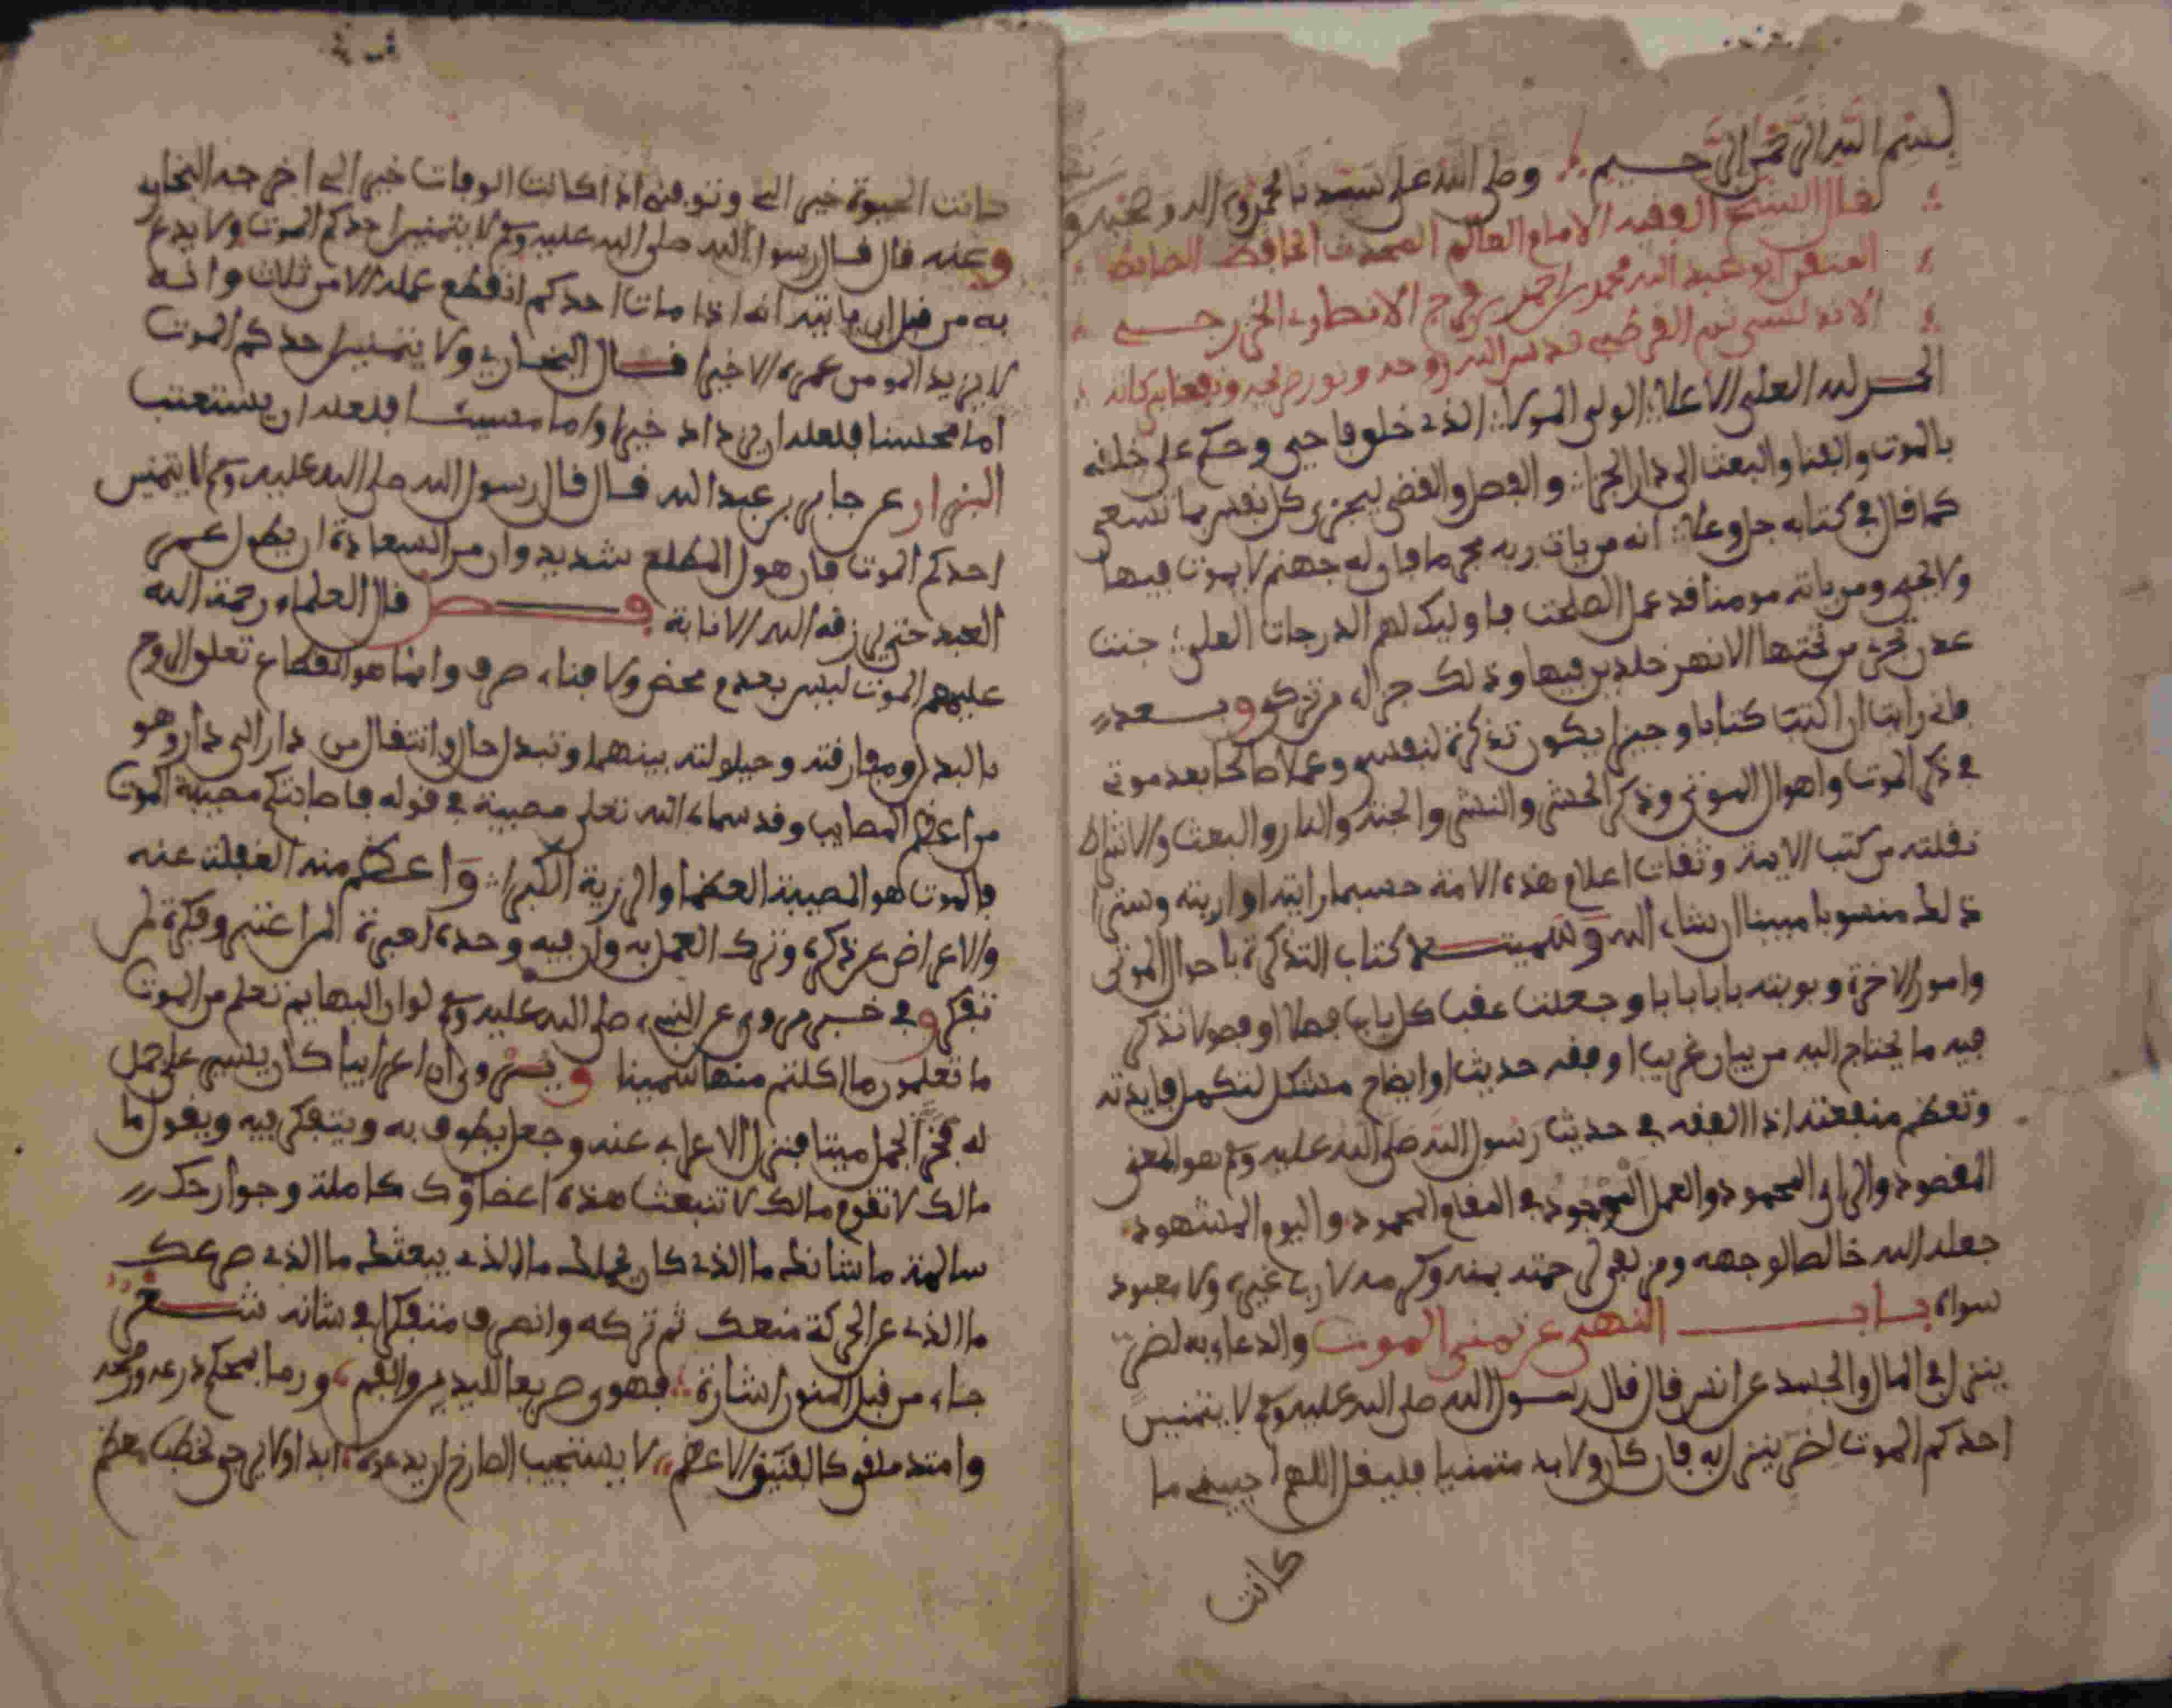 بسم الله الرحمن الرحيم وصلى الله على سيدنا محمد وعلى اله وصحبه و
قال الشيخ الفقيه الامام العالم المحدث الحافظ
ابو عبد الله محمد بن احمد بن فرج الانصاري الخزرجي
الاندلسي ثم القرطبي قدس الله روحه ونور ضريحه ونفعنا ببركاته
الحمد لله العلي الاعلا الولي المولا الذي خلق فاحيى وحكم على خلقه
بالموت والفنا والبعث الى دار الجزا والفصل والقضى ليجزي كل نفس بما تسعى
كما قال في كتابه جل وعلا انه من يات ربه مجرما فان له جهنم لا يموت فيها
ولا يحيى ومن ياته مومنا قد عمل الصلحت فاوليك لهم الدرجات العلى جنت
عدن تجري من تحتها الانهر خلدين فيها وذلك جزاء من تزكى وبعد
فاني رايت ان اكتب كتابا وجيزا يكون تذكرة لنفسي وعملا صالحا بعد موتي
في ذكر الموت واحوال الموتى وذكر الحشر والنشر والجنة والنار والبعث والاشراط
نقلته من كتب الايمة وثقات اعلام هذه الامة حسبما رايته او اريته وسترا
ذلك منسوبا مبينا ان شاء الله وسميته كتاب التذكرة باحوال الموتى
وامور الاخرة وبوبته بابا بابا وجعلت عقب كل باب فصلا او فصولا نذكر
فيه ما يحتاج اليه من بيان غريب او فقه حديث او ايضاح مشكل لتكمل فايدته
وتعظم منفعته اذ الفقه في حديث رسول الله صلى الله عليه وسلم هو المعنى
المقصود والراى المحمود والعمل الموجود في المقام المحمود واليوم المشهود
جعله الله خالصا لوجهه ومن رحمته بمنه وكرمه لا رب غيره ولا معبود
سواه باب النهي عن تمني الموت والدعاء به لضر
ينزل في المال والجسد عن انس قال قال رسول الله صلى الله عليه وسلم لا يتمنين
احدكم الموت لضر ينزل به فان كان ولا بد متمنيا فليقل اللهم احييني ما
كانت
كانت الحيوة خير الي وتوفني اذا كانت الوفات خير الي اخرجه البخاري
وعنه قال قال رسول الله صلى الله عليه وسلم لا يتمنين احدكم الموت ولا يدع
به من قبل ان ياتيه انه اذا مات احدكم انقطع عمله الا من ثلاث وانه
لا يزيد المومن عمره الا خيرا قال البخاري ولا يتمنين احدكم الموت
اما محسنا فلعله ان يزداد خيرا واما مسيئا فلعله ان يستعتب
البزار عن جابر بن عبد الله قال قال رسول الله صلى الله عليه وسلم لا يتمنين
احدكم الموت فان هول المطلع شديد وان من السعادة ان يطول عمر
العبد حتى يرزقه الله الانابة فصل قال العلماء رحمة الله
عليهم الموت ليس بعدم محض ولا فناء صرف وانما هو انقطاع تعلق الروح
بالبدن ومفارقته وحيلولته بينهما وتبدل حال وانتقال من دار الى دار وهو
من اعظم المصايب وقد سماه الله تعلى مصيبة في قوله فاصابتكم مصيبة الموت
فالموت هو المصيبة العظما والرزية الكبرا واعظم منه الغفلة عنه
والاعراض عن ذكره وترك العمل به وان فيه وحده لعبرة لمن اعتبر وفكرة لمن
تفكر وفي خبر مروي عن النبيء صلى الله عليه وسلم لو ان البهايم تعلم من الموت
ما تعلمون ما اكلتم منها سمينا ويروى ان اعرابيا كان يسير على جمل
له فخر الجمل ميتا فنزل الاعرابي عنه وجعل يطوف به ويتفكر فيه ويقول ما
مالك لا تقوم مالك لا تنبعث هذه اعضاؤك كاملة وجوارحك
سالمة ما شانك ما الذي كان يحملك ما الذي يبعثك ما الذي صرعك
ما الذي عن الحركة منعك ثم تركه وانصرف متفكرا في شانه شعر
جاء من قبل المنون اشارة فهوى صريعا لليدين والفم ورما بمحكم درعه ورمحه
وامتد ملقى كالفنيق الاعظم لا يستجيب لصارخ ان يدعه ابدا ولا يرجى لخطب معظم